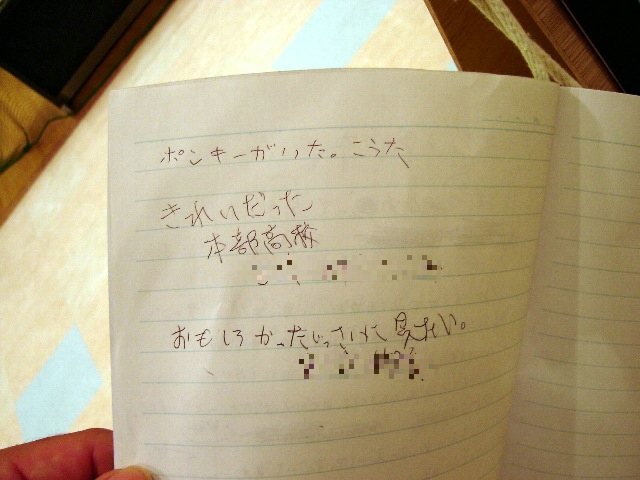 ポンキーがいた。こうた
きれいだった
本部高校
おもしろかったじっさいに見たい。